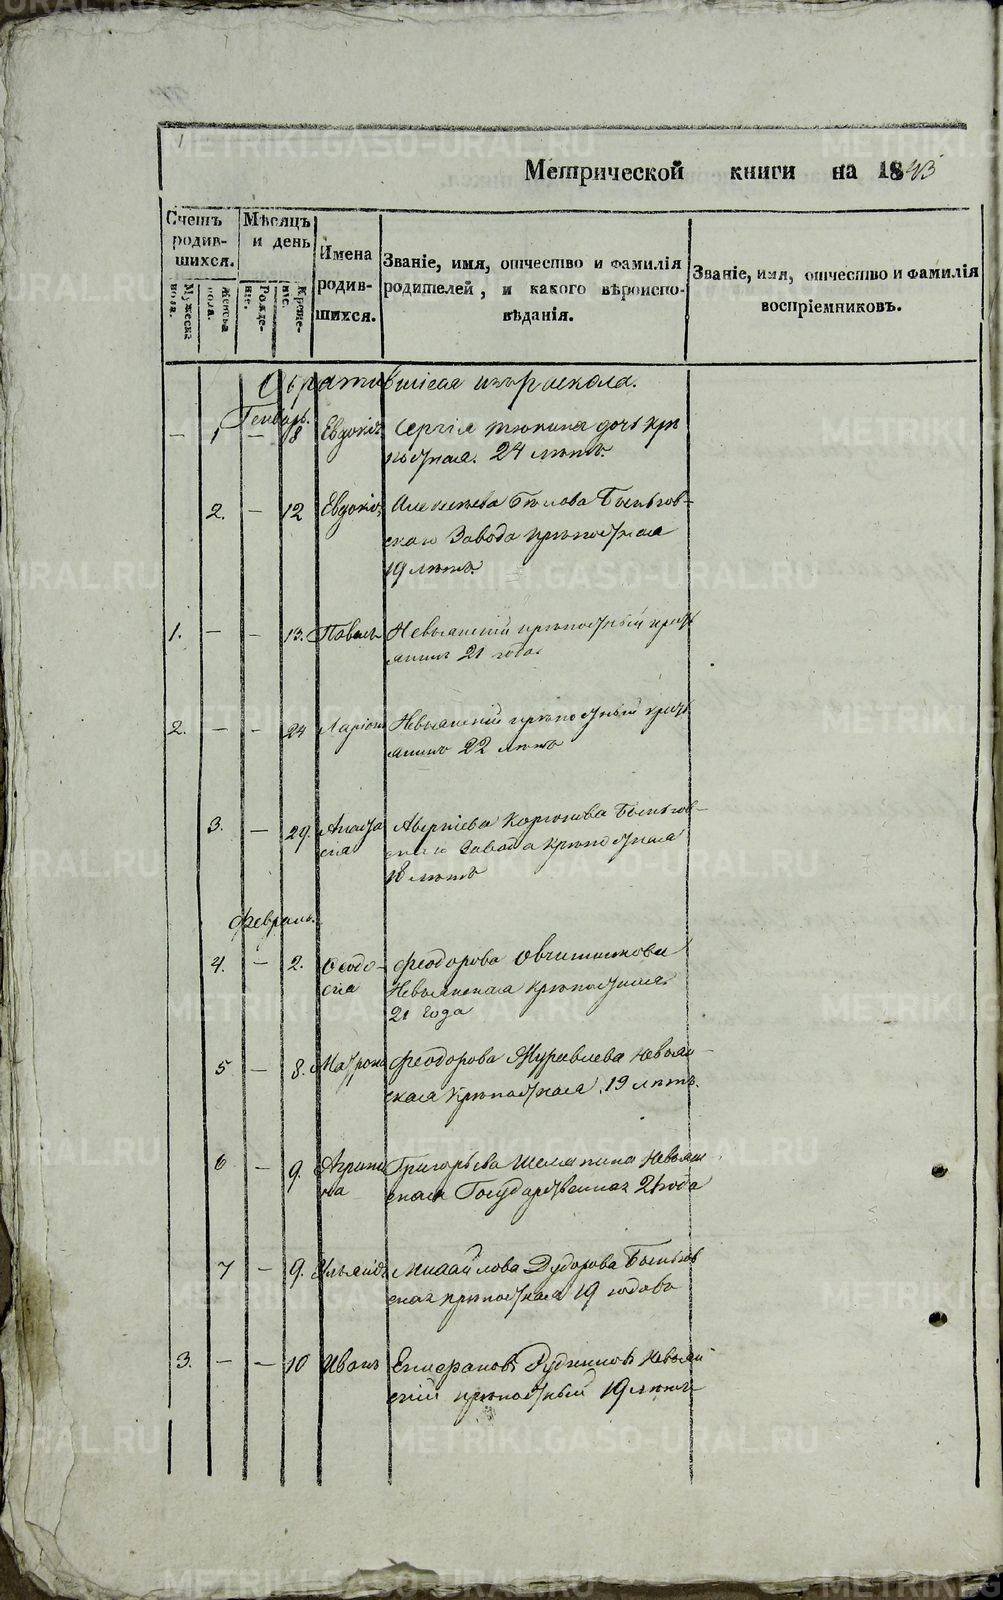 Метрической книги на 1843
Счетъ родив-шихся.
Мужеска пола.
Женска пола.
Мѣсяцъ и день
Рожде-ніе.
Креще-ніе.
Имена родив-шихся.
Званіе, имя, отчество и фамилія родителей, и какого вѣроиспо-вѣданія.
Званіе, имя, отчество и фамилія воспріемниковъ.
Обратившіеся изъ раскола.
Генварь.
— 1 — 8 Евдокія Сергіа Тюкина дочь крѣ
постная. 24 лѣтъ.
2. — 12 Евдокія Алексѣева Бѣлова Быньгов-
скаго Завода крѣпостная
19 лѣтъ.
1. — — 13. Павелъ Невьянскій крѣпостный крест
янинъ 21 года.
2. — — 24 Ларіонъ Невьянскій крѣпостный крест
янинъ 22 лѣтъ
3. — 29. Анаста
сія
Аверкіева Корюкова Быньгов-
скаго Завода крѣпостная
18 лѣтъ
Февраль.
4. — 2. Ѳеодо-
сія
Феодорова Овчинникова
Невьянская крѣпостная
21 года
5 — 8. Матрона Феодорова Журавлева Невьян-
ская крѣпостная 19 лѣтъ.
6 — 9. Агрипи
на
Григорьева Шеляпина Невьян
ская Государственная 21 года
7 — 9. Михайлова Дудорова Быньгов
ская крѣпостная 19 годовъ
3. — — 10 Иванъ Рудниковъ Невьян
скій крѣпостный 19 лѣтъ
METRIKI.GASO-URAL.RU